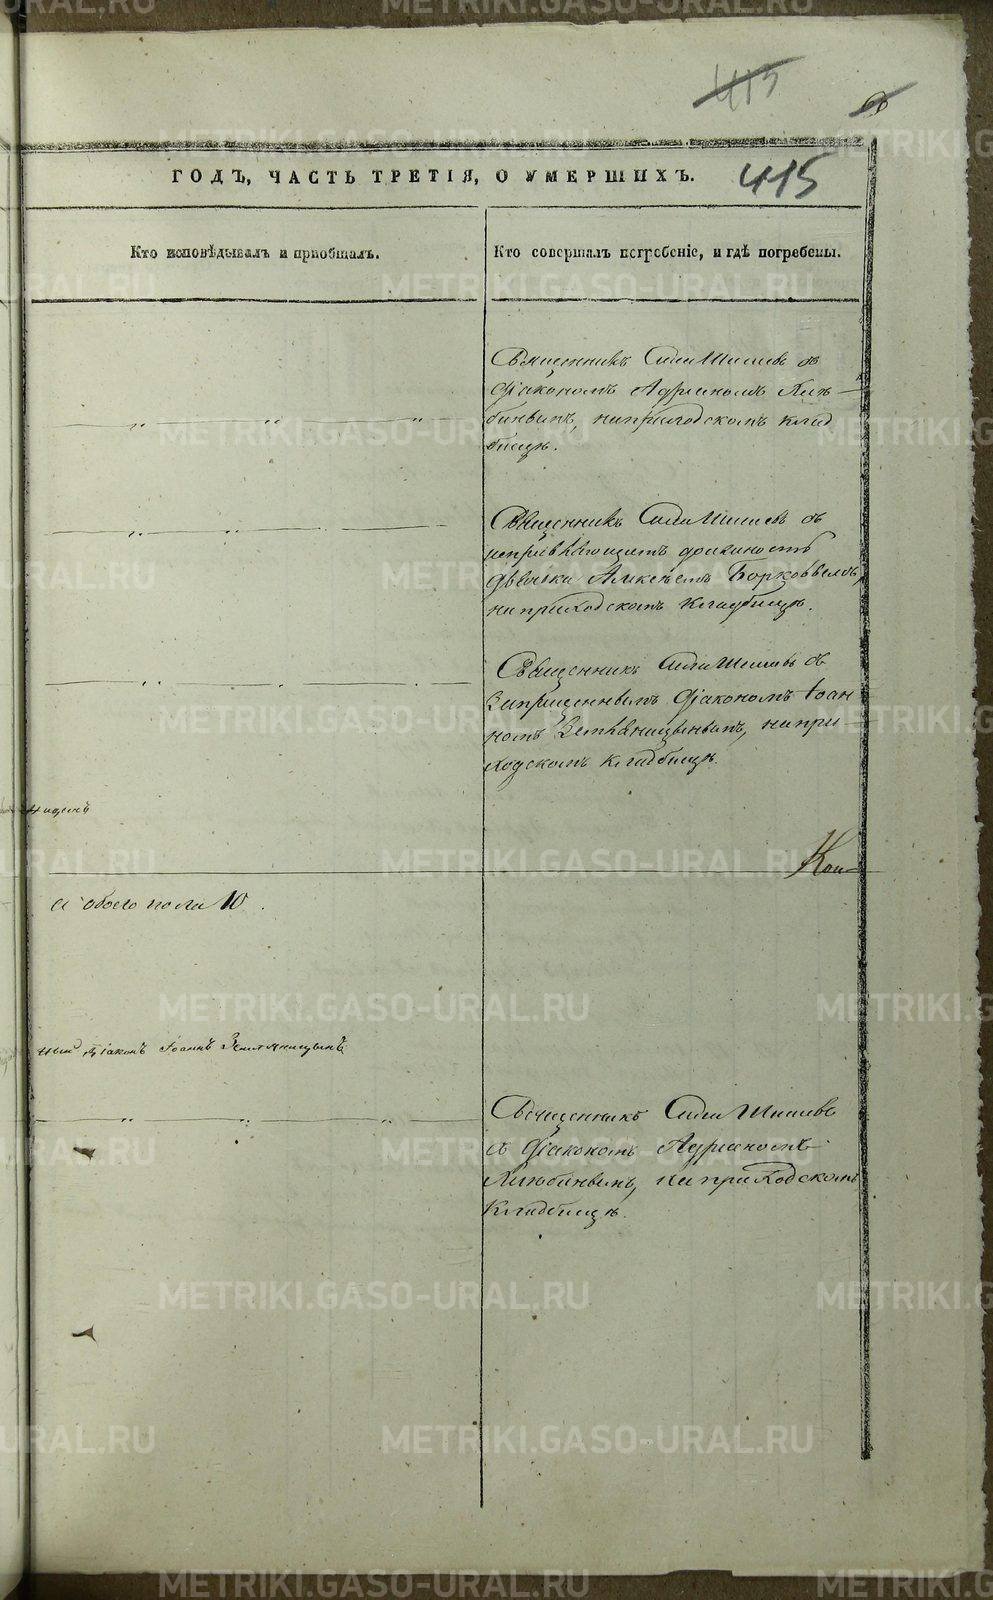 415
415
ГОДЪ, ЧАСТЬ ТРЕТІЯ, О УМЕРШИХЪ.
Кто исповѣдывалъ и пріобщалъ.
Кто совершалъ погребеніе, и гдѣ погребены.
Священникъ Сила Шишевъ съ
Діакономъ Адріаномъ Хлю-
бинымъ, на приходскомъ клад
бищѣ.
Священникъ Сила Шишевъ съ
должность
дьячка Алексѣемъ
на приходскомъ кладбищѣ.
Священникъ Сила Шишевъ съ
Запрещеннымъ Діакономъ Іоан
номъ Земляницынымъ, на при-
ходскомъ кладбищѣ.
Кон-
а обоего пола 10.
Діаконъ Іоаннъ Земляницынъ
Священникъ Сила Шишевъ
съ Діакономъ Адріаномъ
Хлюбинымъ, на приходскомъ
Кладбищѣ.
METRIKI.GASO-URAL.RU